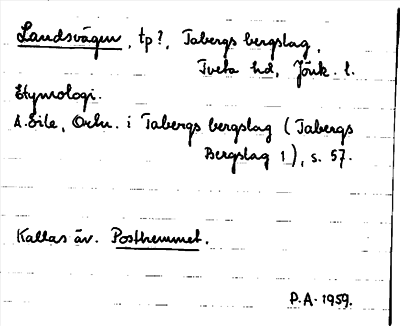 Landsvägen, tp?, Tabergs bergslag,
Tveta hd, Jönk. l.
Etymologi.
A. Eile, Ortn. i Tabergs bergslag (Tabergs
Bergslag 1), s. 57.
Kallas äv. Posthemmet.
P.A. 1959.